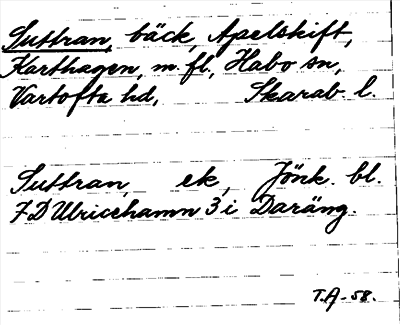 Suttran, bäck, Apelskift,
Karthagen, m. fl., Habo sn,
Vartofta hd, Skarab. l.
Suttran, ek, Jönk. bl.
7D Ulricehamn 3 i Daräng.
T.A-58.